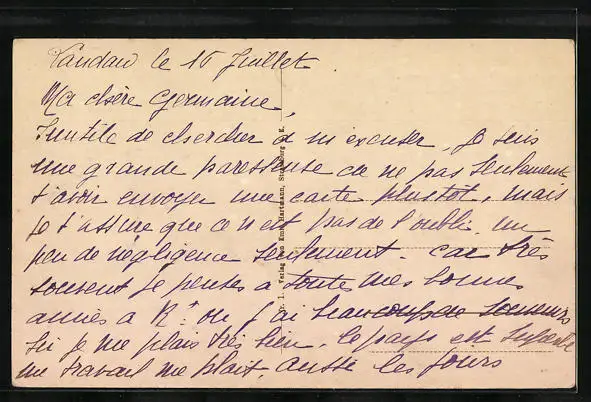 Landau le 16 Juillet.
Ma chère Germaine,
Inutile de chercher à m'excuser, je suis
une grande paresseuse de ne pas seulement
t'avoir envoyer une carte plustôt, mais
je t'assure que ce n'est pas de l'oubli un
peu de négligence seulement. car très
souvent je penses a toute mes bonnes
amies a R. ou j'ai beaucoup de souvenirs
Ici je me plais très bien, le pays est superbe
me travail me plait, aussi les jours
Verlag von Hartmann,